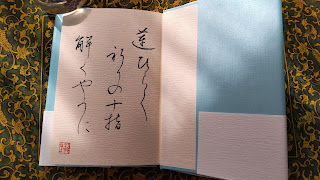 蓮ひらく
祈りの十指
解くやうに